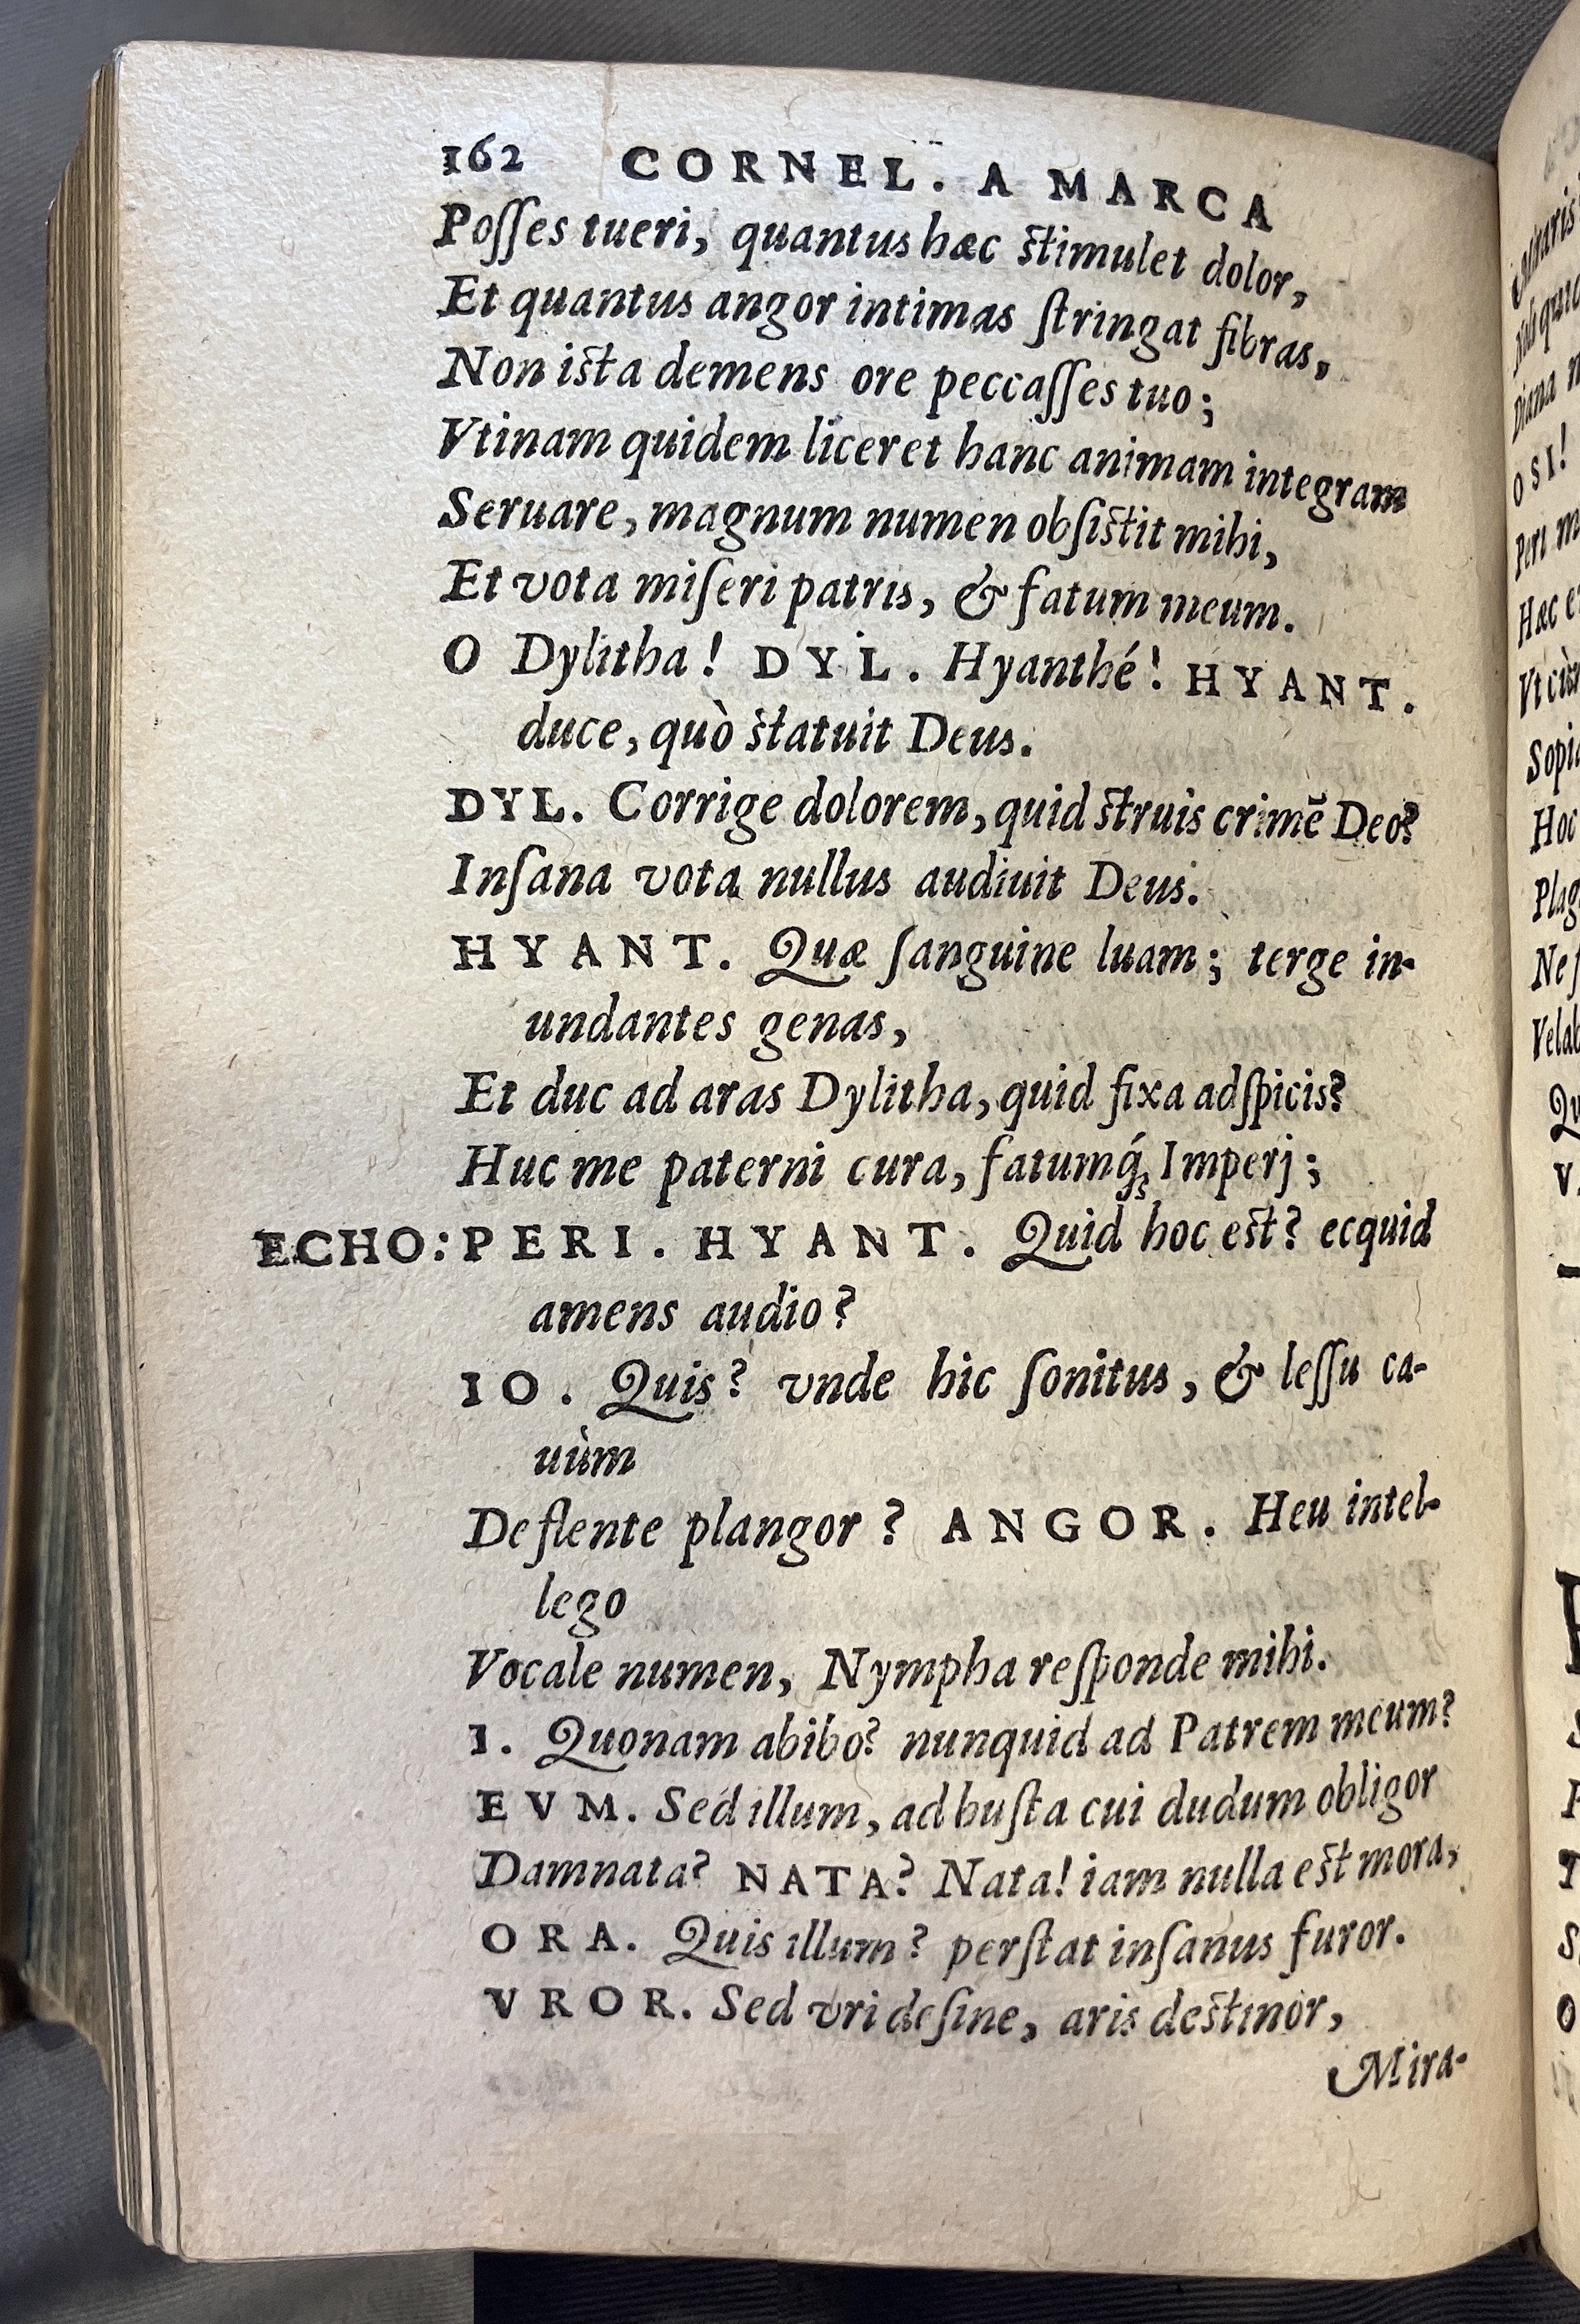 162 CORNEL. A MARCA
Posſes tueri, quantus hæc ſtimulet dolor,
Et quantus angor intimas ſtringat fibras,
Non iſta demens ore peccaſſes tuo;
Vtinam quidem liceret hanc animam integram
Seruare, magnum numen obſiſtit mihi,
Et vota miſeri patris, & fatum meum.
O Dylitha! DYL. Hyanthé! HYANT.
duce, quò ſtatuit Deus.
DYL. Corrige dolorem, quid ſtruis crimẽ Deo?
Inſana vota nullus audiuit Deus.
HYANT. Quæ ſanguine luam; terge in-
undantes genas,
Et duc ad aras Dylitha, quid fixa adſpicis?
Huc me paterni cura, fatumq́ꝫ Imperj;
ECHO: PERI. HYANT. Quid hoc eſt? ecquid
amens audio?
IO. Quis? vnde hic ſonitus, & leſſu ca-
uùm
Deflente plangor? ANGOR. Heu intel-
lego
Vocale numen, Nympha reſponde mihi.
I. Quonam abibo? nunquid ad Patrem meum?
EVM. Sed illum, ad buſta cui dudum obligor
Damnata? NATA? Nata! iam nulla eſt mora,
ORA. Quis illum? perſtat inſanus furor.
VROR. Sed vri deſine, aris deſtinor,
Mira-
Diana
OSI!
Peri
Hæc
Hoc